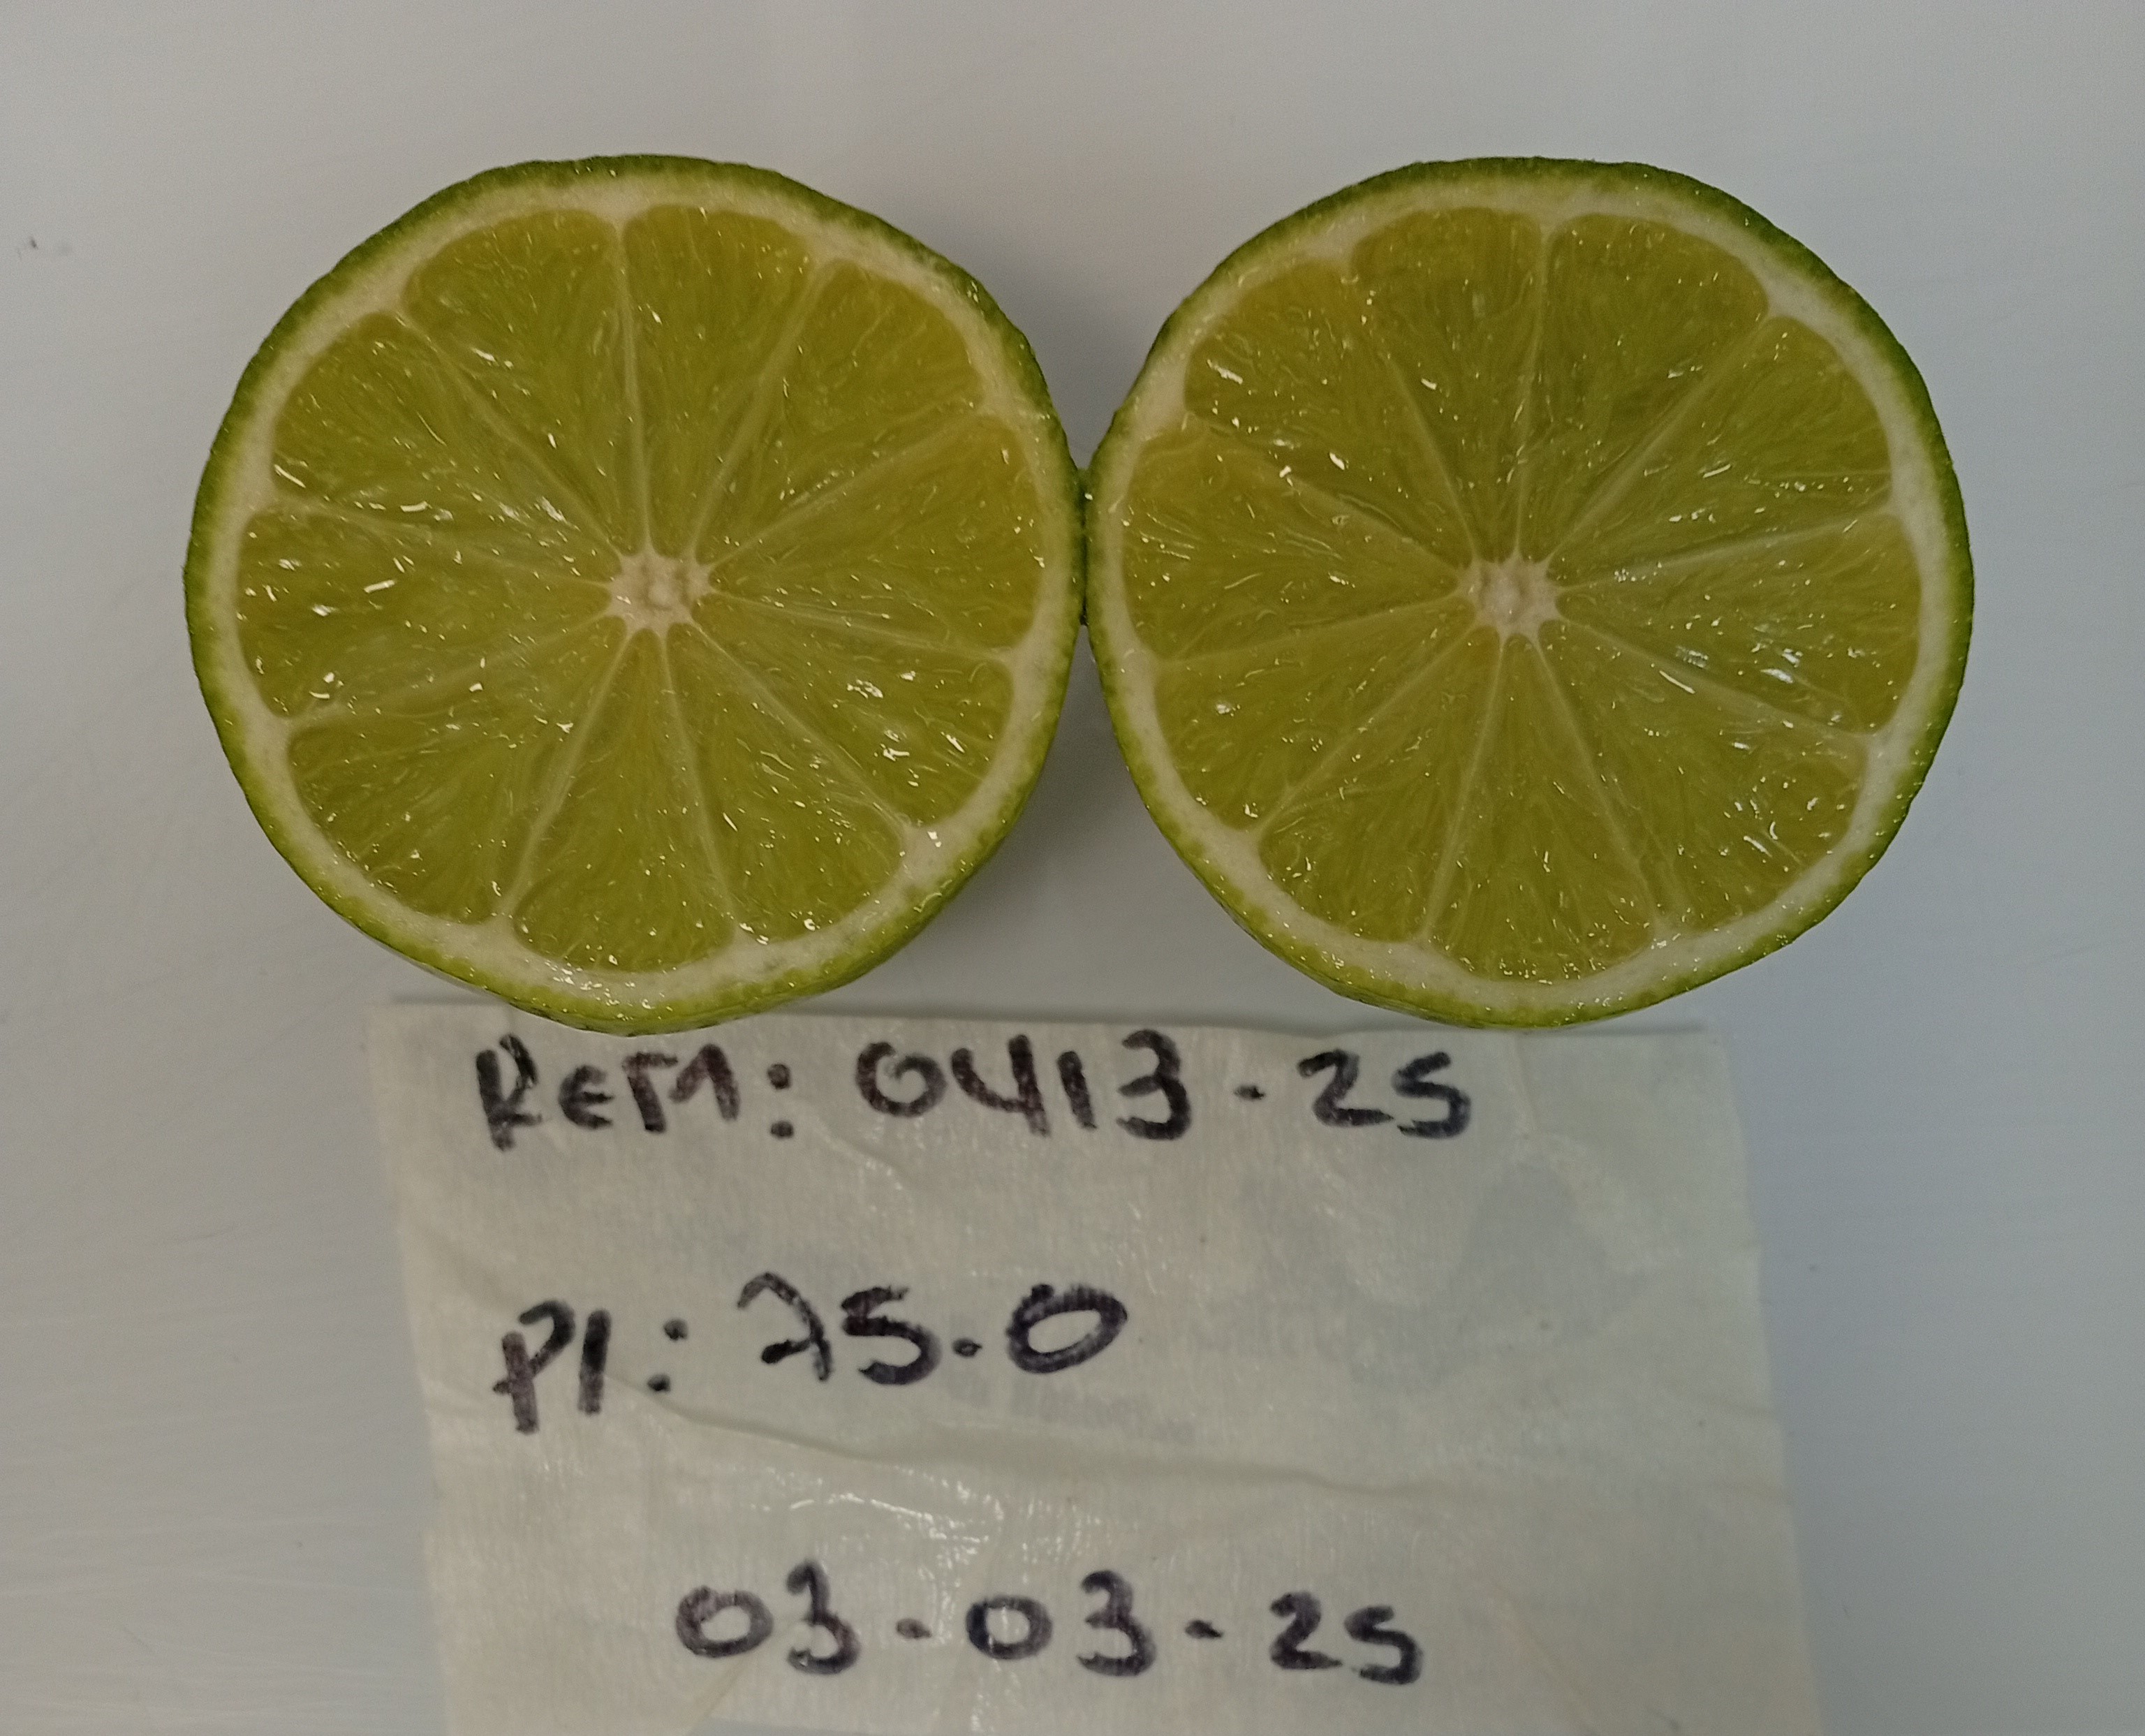 REM: 0413-25
PI: 75.0
03-03-25